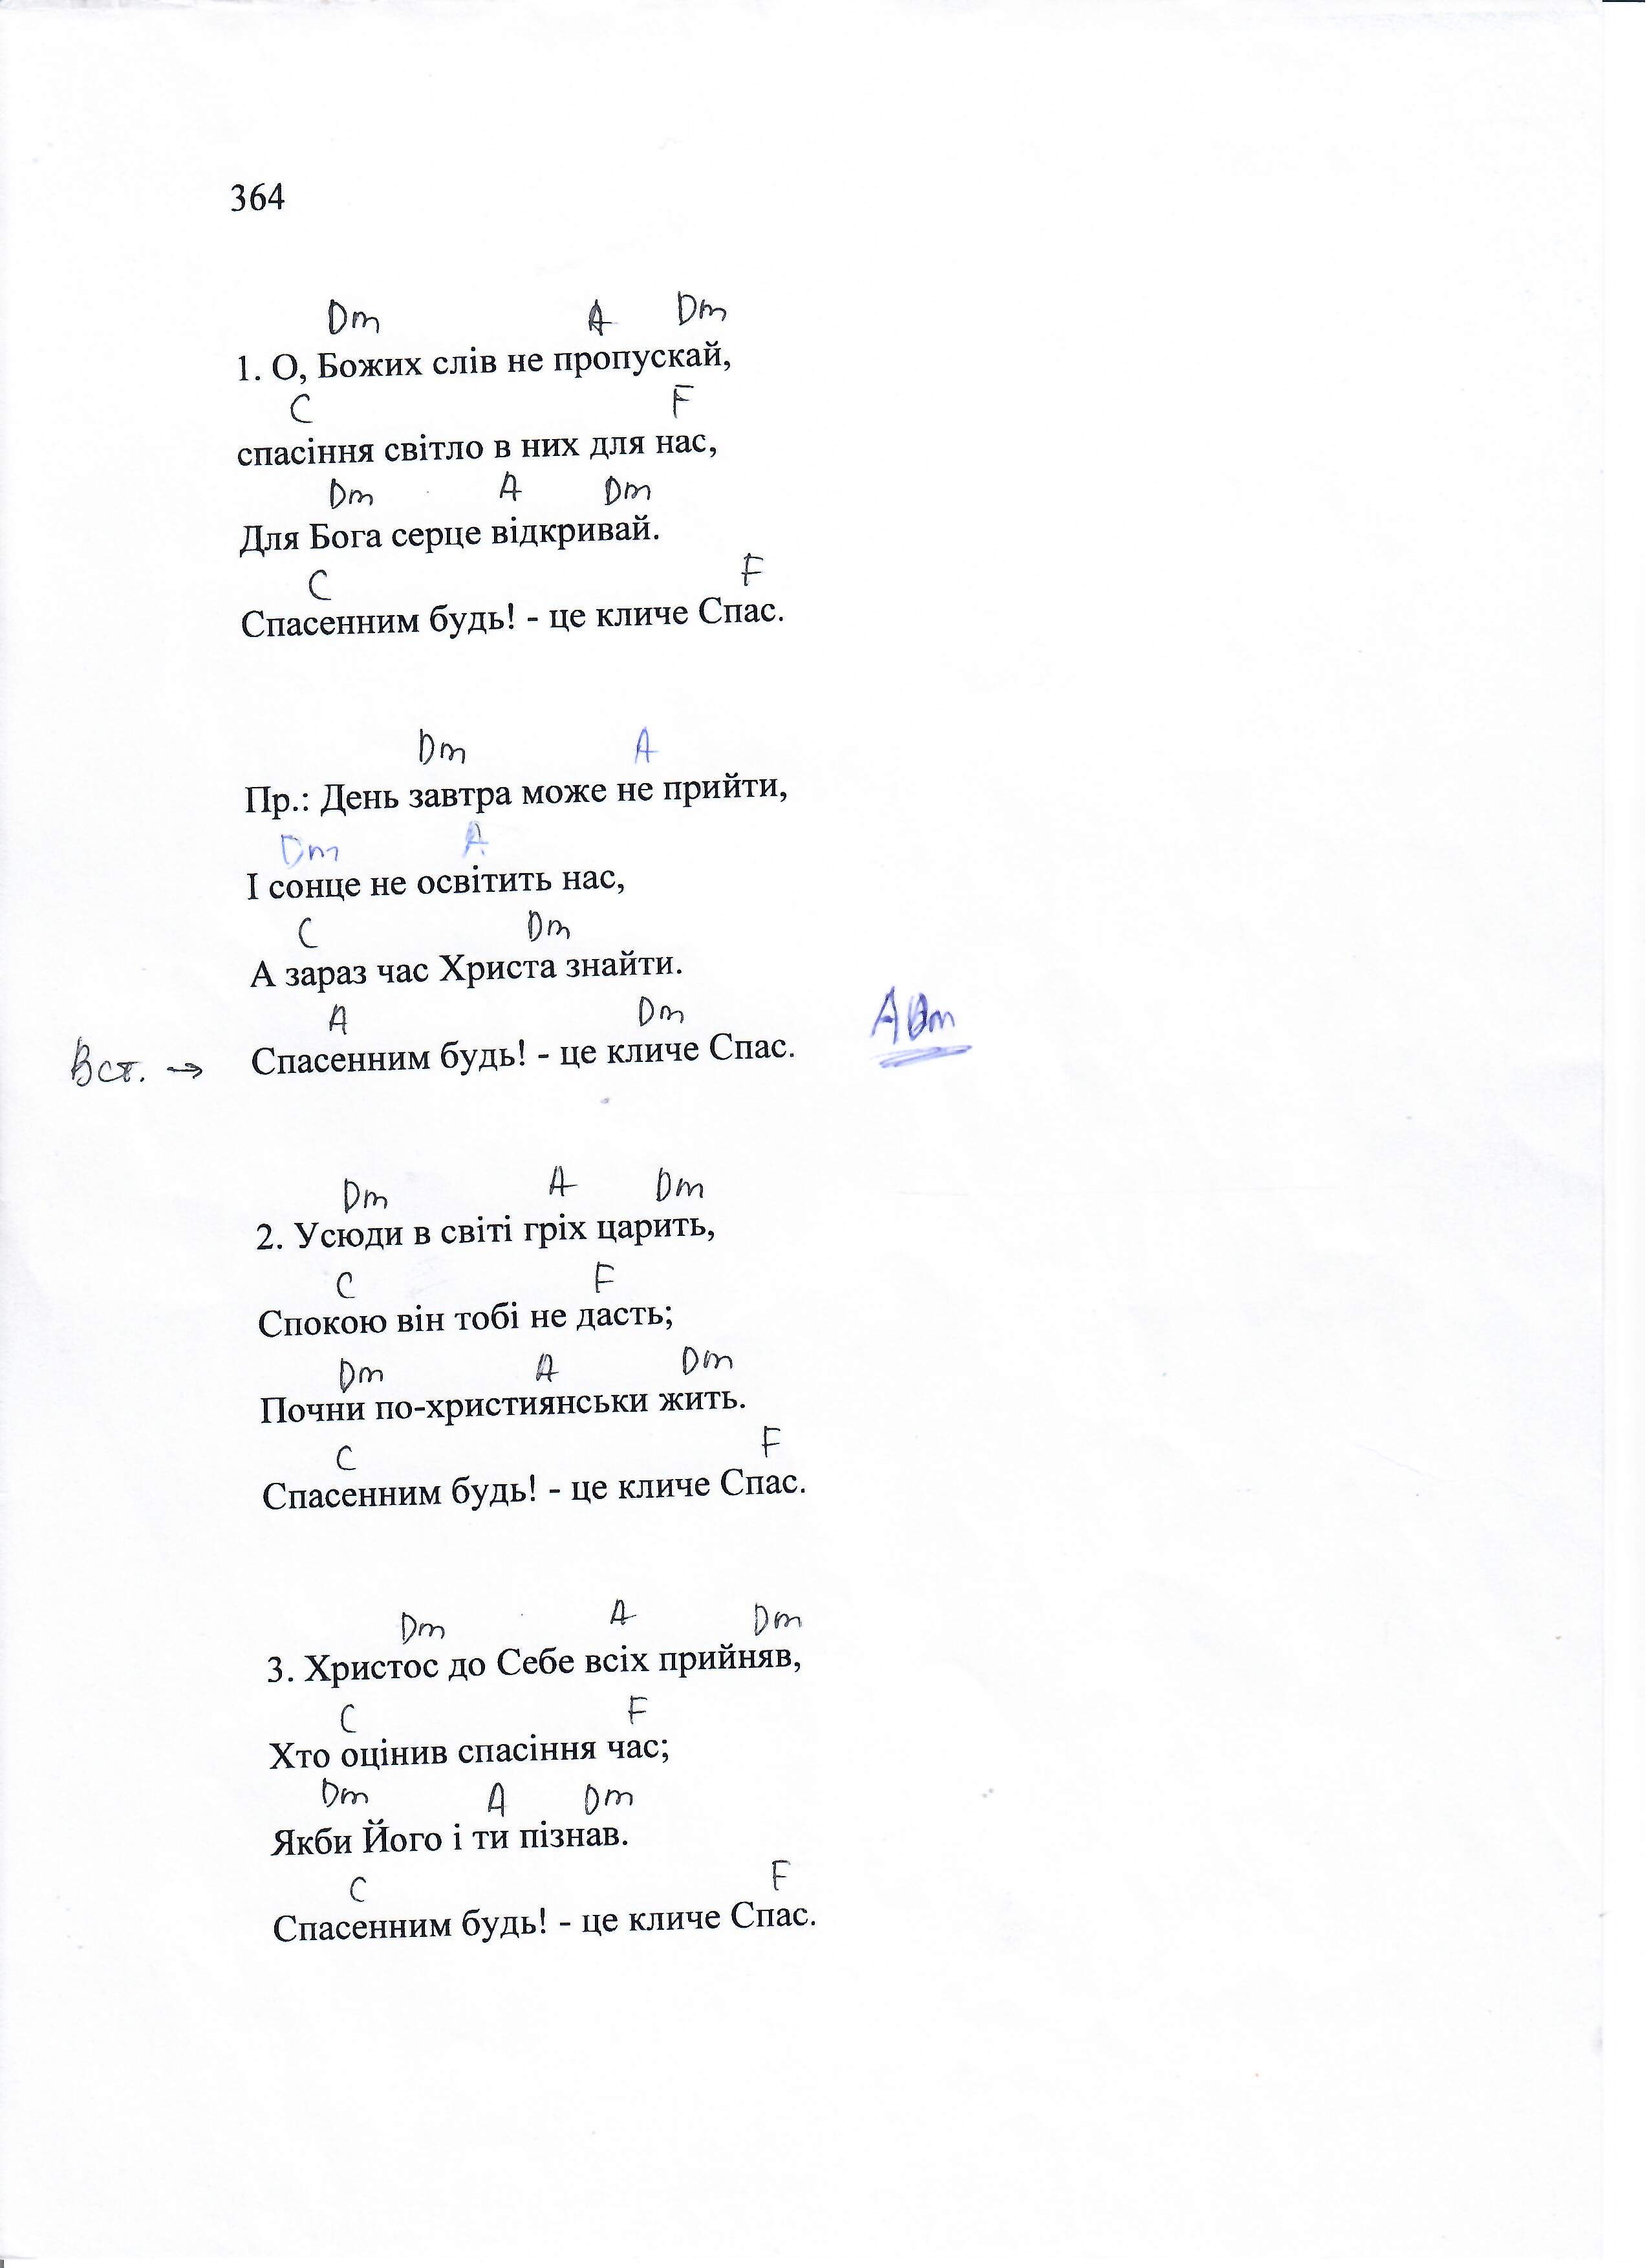 364
Dm A Dm
1. О, Божих слів не пропускай,
C F
спасіння світло в них для нас,
Dm A Dm
Для Бога серце відкривай.
C F
Спасенним будь! - це кличе Спас.
Dm A
Пр.: День завтра може не прийти,
Dm A
І сонце не освітить нас,
C Dm
А зараз час Христа знайти.
A Dm A Dm
Вст. → Спасенним будь! - це кличе Спас.
Dm A Dm
2. Усюди в світі гріх царить,
C F
Спокою він тобі не дасть;
Dm A Dm
Почни по-християнськи жить.
C F
Спасенним будь! - це кличе Спас.
Dm A Dm
3. Христос до Себе всіх прийняв,
C F
Хто оцінив спасіння час;
Dm A Dm
Якби Його і ти пізнав.
C F
Спасенним будь! - це кличе Спас.